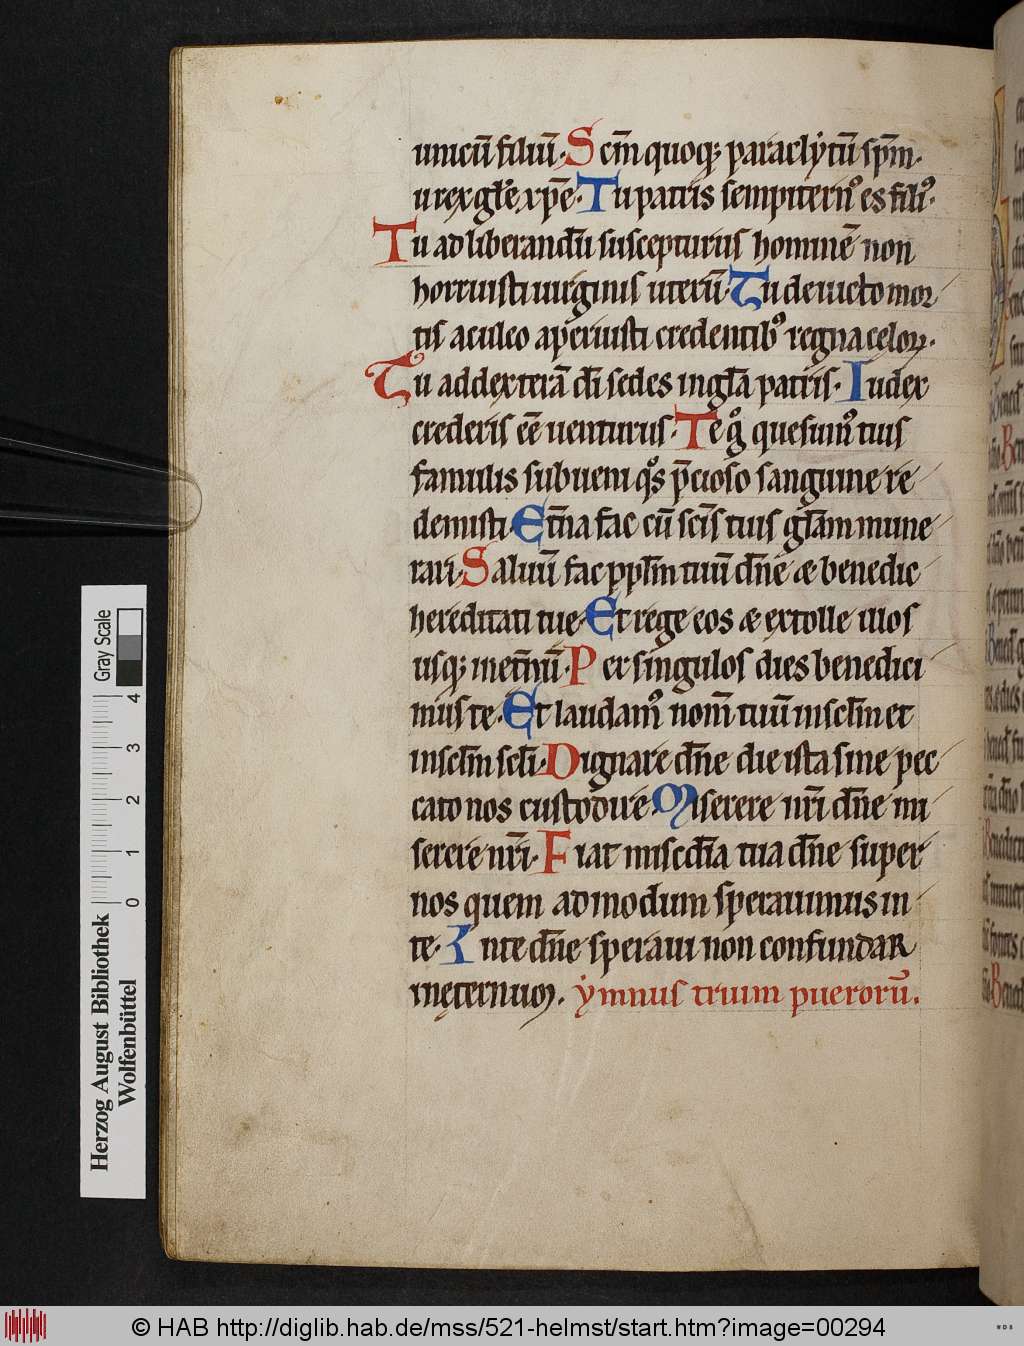 unicū filiū. Scm̄ quoq; paraclytū sp̄m.
u rex gl̄e xp̄e. Tu patris sempiternꝰ es filiꝰ.
Tu ad liberandū suscepturus hominē non
horruisti uirginis uterū. Tu deuicto mor
tis aculeo aperuisti credentibꝰ regna celoꝝ.
Tu ad dexterā dī sedes in gl̄a patris. Iudex
crederis eē uenturus. Te gͦ quesumꝰ tuis
famulis subueni qͦs p̄cioso sanguine re
demisti. Et̄na fac cū sc̄is tuis gl̄am mune
rari. Saluū fac pp̄lm tuū dn̄e æ benedic
hereditati tue. Et rege eos æ extolle illos
usq; inet̄nū. Per singulos dies benedici
mus te. Et laudamꝰ nom̄ tuū inscl̄m et
inscl̄m scl̄i. Dignare dn̄e die ista sine pec
cato nos custodire. Miserere nr̄i dn̄e mi
serere nr̄i. Fiat misc̄dia tua dn̄e super
nos quem admodum sperauimus in
te. In te dn̄e speraui non confundar
inęternum. ẏmnus trium puerorū.
Herzog August Bibliothek
Wolfenbüttel
0 1 2 3 4
Gray Scale
© HAB http://diglib.hab.de/mss/521-helmst/start.htm?image=00294